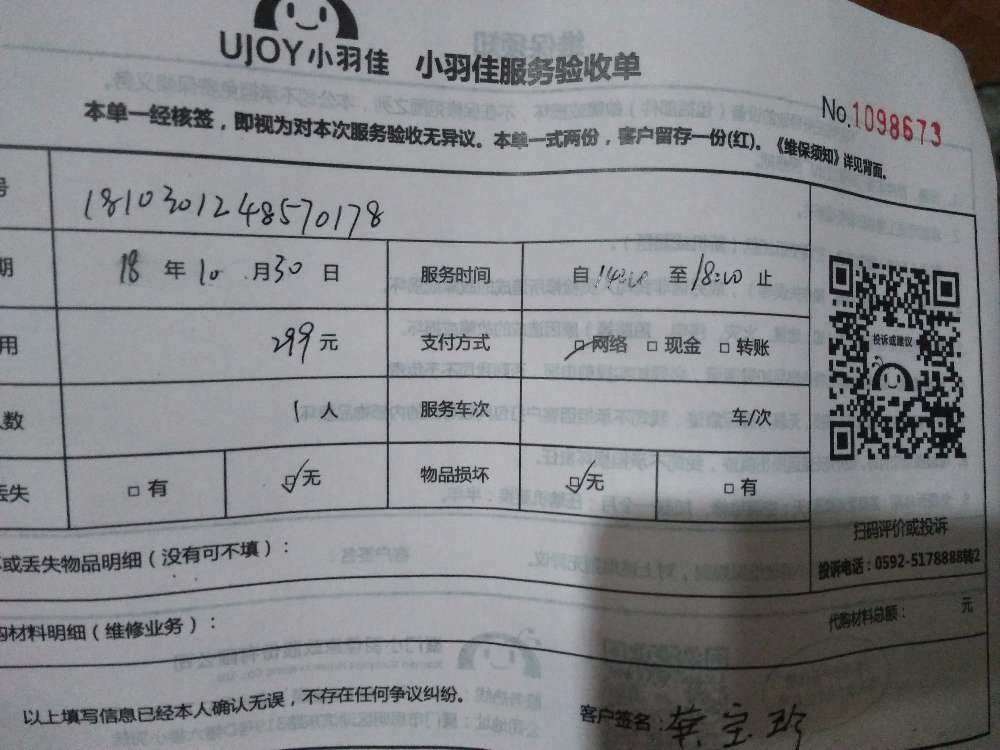 UJOY小羽佳 小羽佳服务验收单
No.1098673
本单一经核签，即视为对本次服务验收无异议。本单一式两份，客户留存一份(红)。《维保须知》详见背面。
号 1810301248570178
期 18 年 10 月 30 日 服务时间 自 14:00 至 18:00 止
用 299 元 支付方式 □网络 □ 现金 □ 转账
人数 1 人 服务车次 车/次
丢失 □ 有 □无 物品损坏 □无 □ 有
投诉或建议
扫码评价或投诉
投诉电话：0592-5178888转2
或丢失物品明细（没有可不填）：
购材料明细（维修业务）： 代购材料总额： 元
以上填写信息已经本人确认无误，不存在任何争议纠纷。
客户签名：龚宝珍